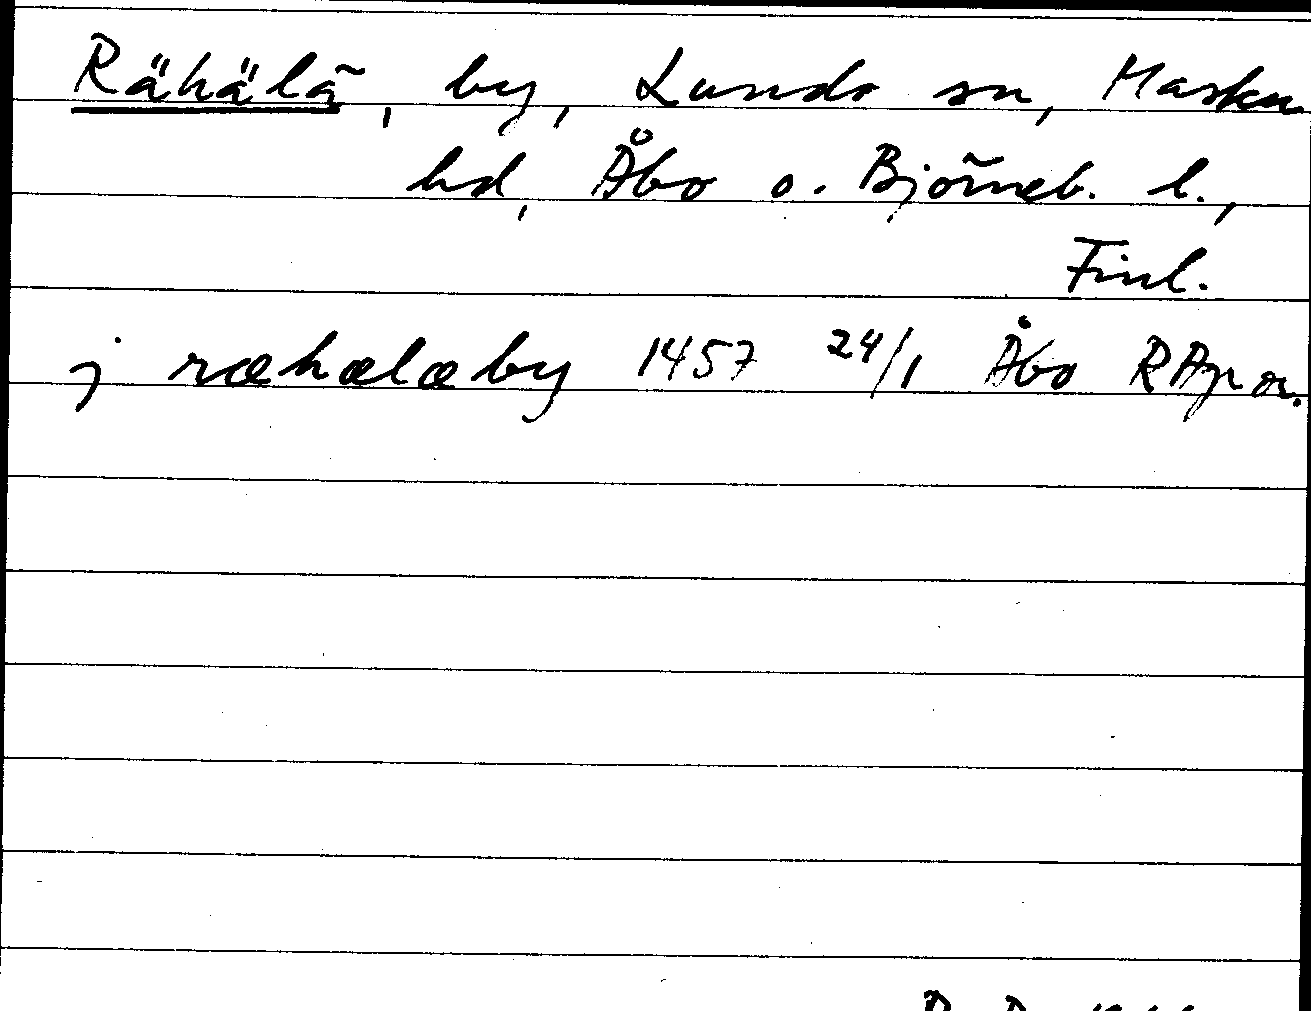 Rähälä, by, Lundo sn, Masku
hd, Åbo o. Björneb. l.,
Finl.
j ræhælæby 1457 24/1 Åbo RAp or.